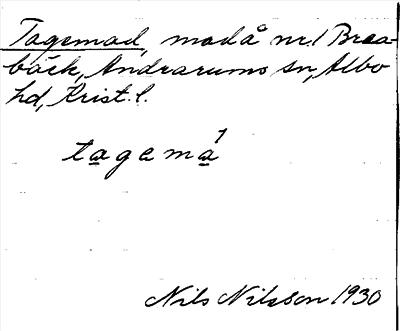 Tagemad, mad å nr 1 Brea-
bäck, Andrarums sn, Albo
hd, Krist. l.
tagemá
Nils Nilsson 1930